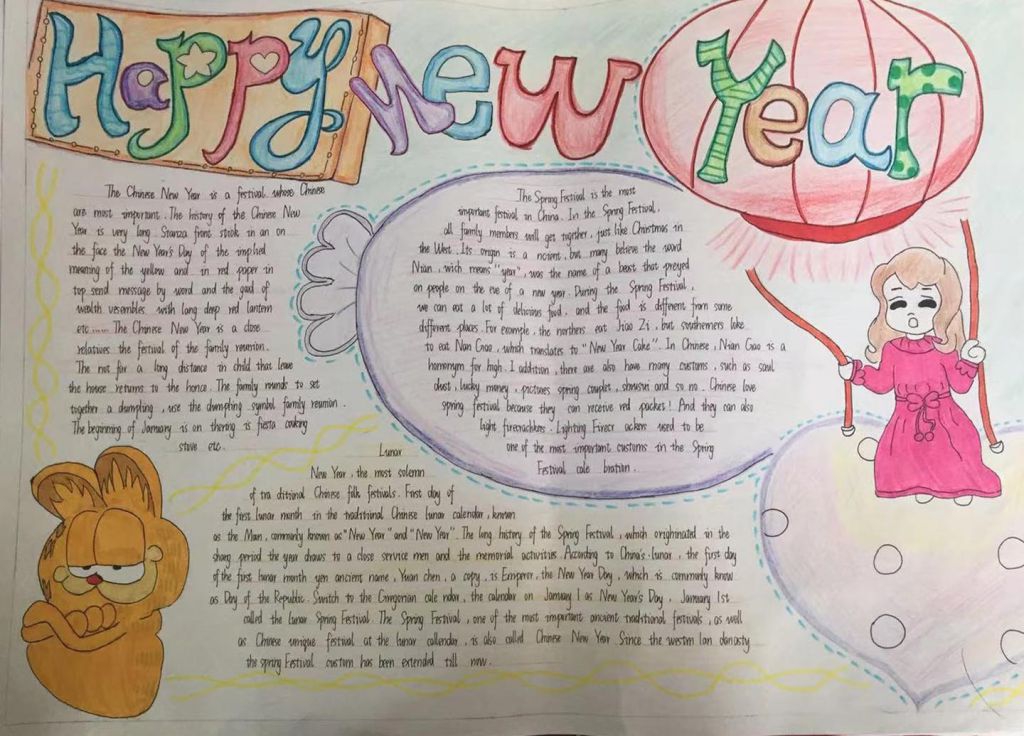 Happy New Year
The Chinese New Year is a festival whose Chinese
are most important. The history of the Chinese New
Year is very long. Stanza front stroke in an on
the face the New Year's Day of the implied
meaning of the yellow and in red paper in
top send message by word and the god of
wealth vesembles with long deep red lantern
etc...... The Chinese New Year is a close
relatives the festival of the family reunion.
The not for a long distance in child that leave
the house returns to the honce. The family rounds to set
together a dumpling, use the dumpling symbol family reunion.
The beginning of January is on thering is fiesta cooking
stove etc.
The Spring Festival is the most
important festival in China. In the Spring Festival,
all family members will get together, just like Christmas in
the West. Its origin is a ncient, but many believe the word
Nian, wich means "year", was the name of a beast that preyed
on people on the eve of a new year. During the Spring Festival,
we can eat a lot of delicious food, and the food is different from some
different places. For example, the northers eat Jiao Zi, but southerners like
to eat Nan Gao, which translates to "New Year Cake". In Chinese, Nian Gao is a
homonym for high. I addition, there are also have many customs, such as saul
dust, lucky money, pictures spring couplet, shousui and so no. Chinese love
spring festival because they can receive red packet! And they can also
light firecrackers. Lighting Firecr ackers used to be
one of the most important customs in the Spring
Festival cale bration.
Lunar
New Year, the most solemn
of tra ditional Chinese folk festivals. First day of
the first lunar month in the traditional Chinese lunar calendar, known
as the Man, commonly known as "New Year" and "New Year". The long history of the Spring Festival, which originated in the
shang period the year draws to a close service men and the memorial activities. According to China's lunar, the first day
of the first lunar month yen ancient name, Yuan chen, a copy, is Emperor, the New Year Day, which is commonly know
as Day of the Republic. Switch to the Gregorian cale ndar, the calendar on January 1 as New Year's Day, January 1st
called the lunar Spring Festival. The Spring Festival, one of the most important ancient traditional festivals, as well
as Chinese unique festival at the lunar callendar, is also called Chinese New Year Since the western lan danasty
the spring Festival custom has been extended till now.